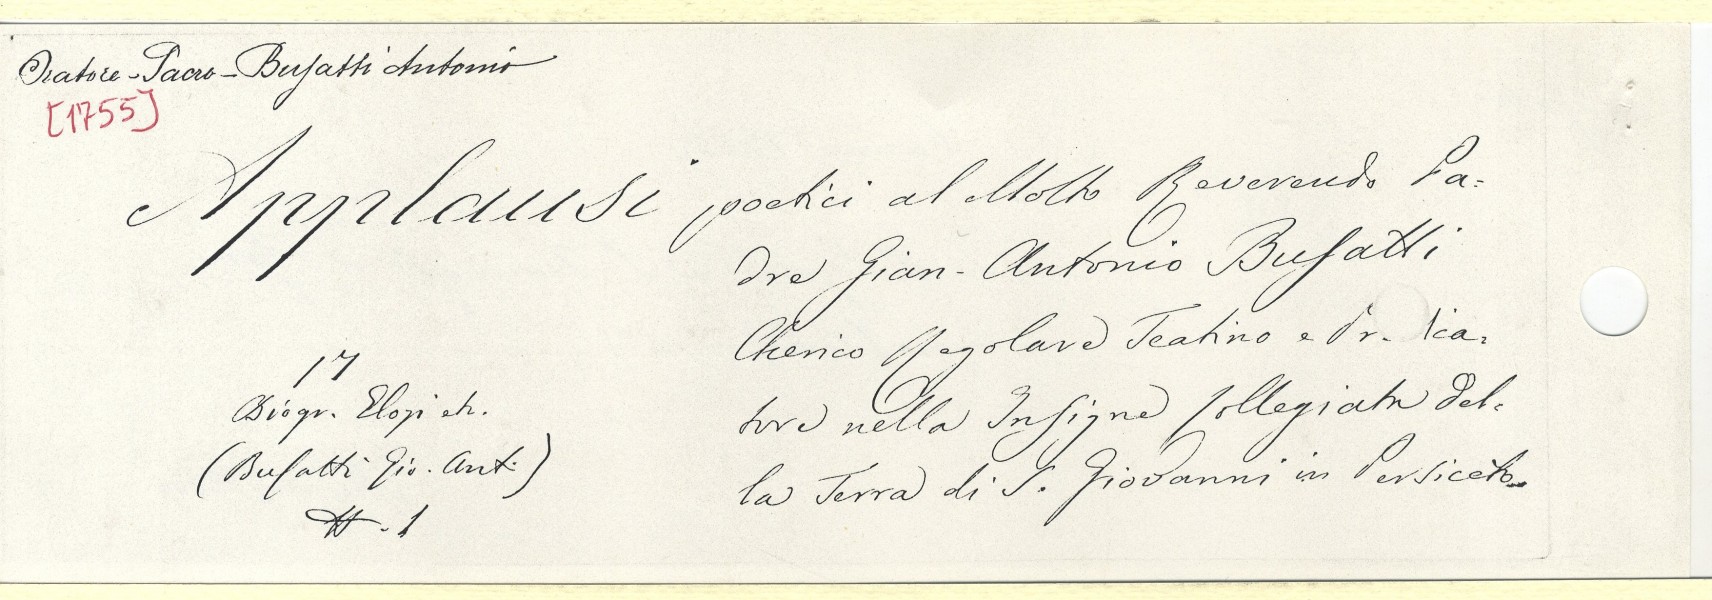 Oratore-Sacro-Busatti Antonio
[1755]
Applausi poetici al Molto Reverendo Pa=
dre Gian-Antonio Busatti
Chierico Regolare Teatino e Pr. ica=
tore nella Insigne Collegiata del=
la Terra di S. Giovanni in Persiceto
17
Biogr. Elogi etc.
(Busatti Gio. Ant.)
N. 1